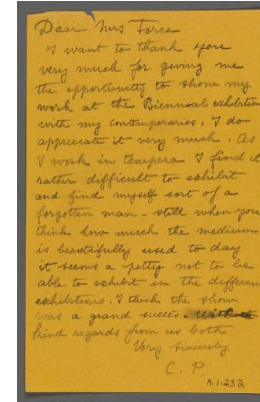 Dear Mrs Force
I want to thank you
very much for giving me
the opportunity to show my
work at the Biennial exhibition
with my contemporaries. I do
appreciate it very much. As
I work in tempera I find it
rather difficult to exhibit
and find myself sort of a
forgotten man - still when you
think how much the medium
is beautifully used to day
it seems a petty not to be
able to exhibit in the different
exhibitions. I think the show
was a grand succes.
kind regards from us both
Very Sincerely
C. P.
A.1.252